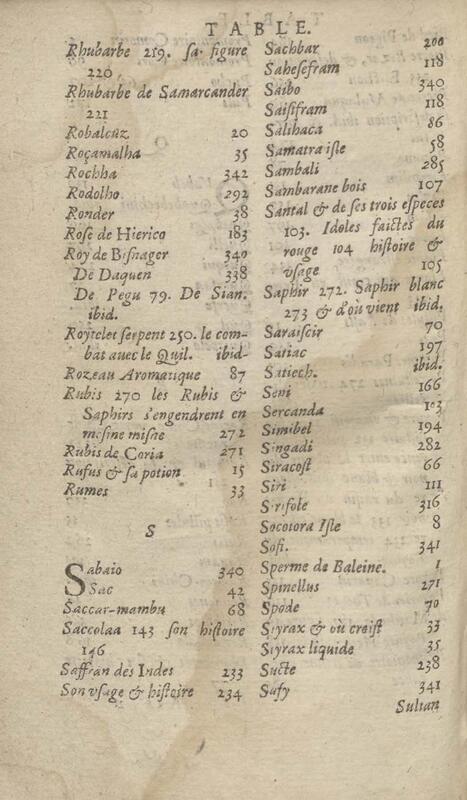 TABLE.
Rhubarbe 219. sa figure
220.
Rhubarbe de Samarcander
221
Robalcuz 20
Roçamalha 35
Rochha 342
Rodolho 292
Ronder 38
Rose de Hierico 183
Roy de Bisnager 340
De Daquen 338
De Pegu 79. De Sian.
ibid.
Roytelet serpent 250. le com-
bat auec le Quil. ibid-
Rozeau Aromatique 87
Rubis 270 les Rubis &
Saphirs s'engendrent en
mesine mine 272
Rubis de Coria 271
Rufus & sa potion 15
Rumes 33
S
Sabaio 340
Sac 42
Saccar-mambu 68
Saccolaa 143 son histoire
146
Saffran des Indes 233
Son vsage & histoire 234
Sachbar 200
Sahesefram 118
Saibo 340
Saisifram 118
Salihaca 86
Samatra isle 58
Sambali 285
Sambarane bois 107
Santal & de ses trois especes
103. Idoles faictes du
rouge 104 histoire &
vsage 105
Saphir 272. Saphir blanc
273 & d'où vient ibid.
Saraiscir 70
Satiac 197
Satiech. ibid.
Seni 166
Sercanda 103
Simibel 194
Singadi 282
Siracost 66
Siri 111
Sirifole 316
Socotora Isle 8
Sofi. 341
Sperme de Baleine. 1
Spinellus 271
Spode 70
Styrax & où creist 33
Styrax liquide 35
Sucte 238
Sufy 341
Sultan